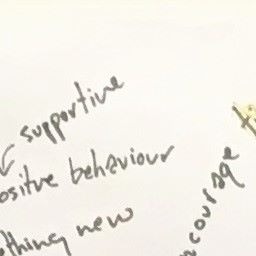 supportive
ositive behaviour
ething new
ncourage